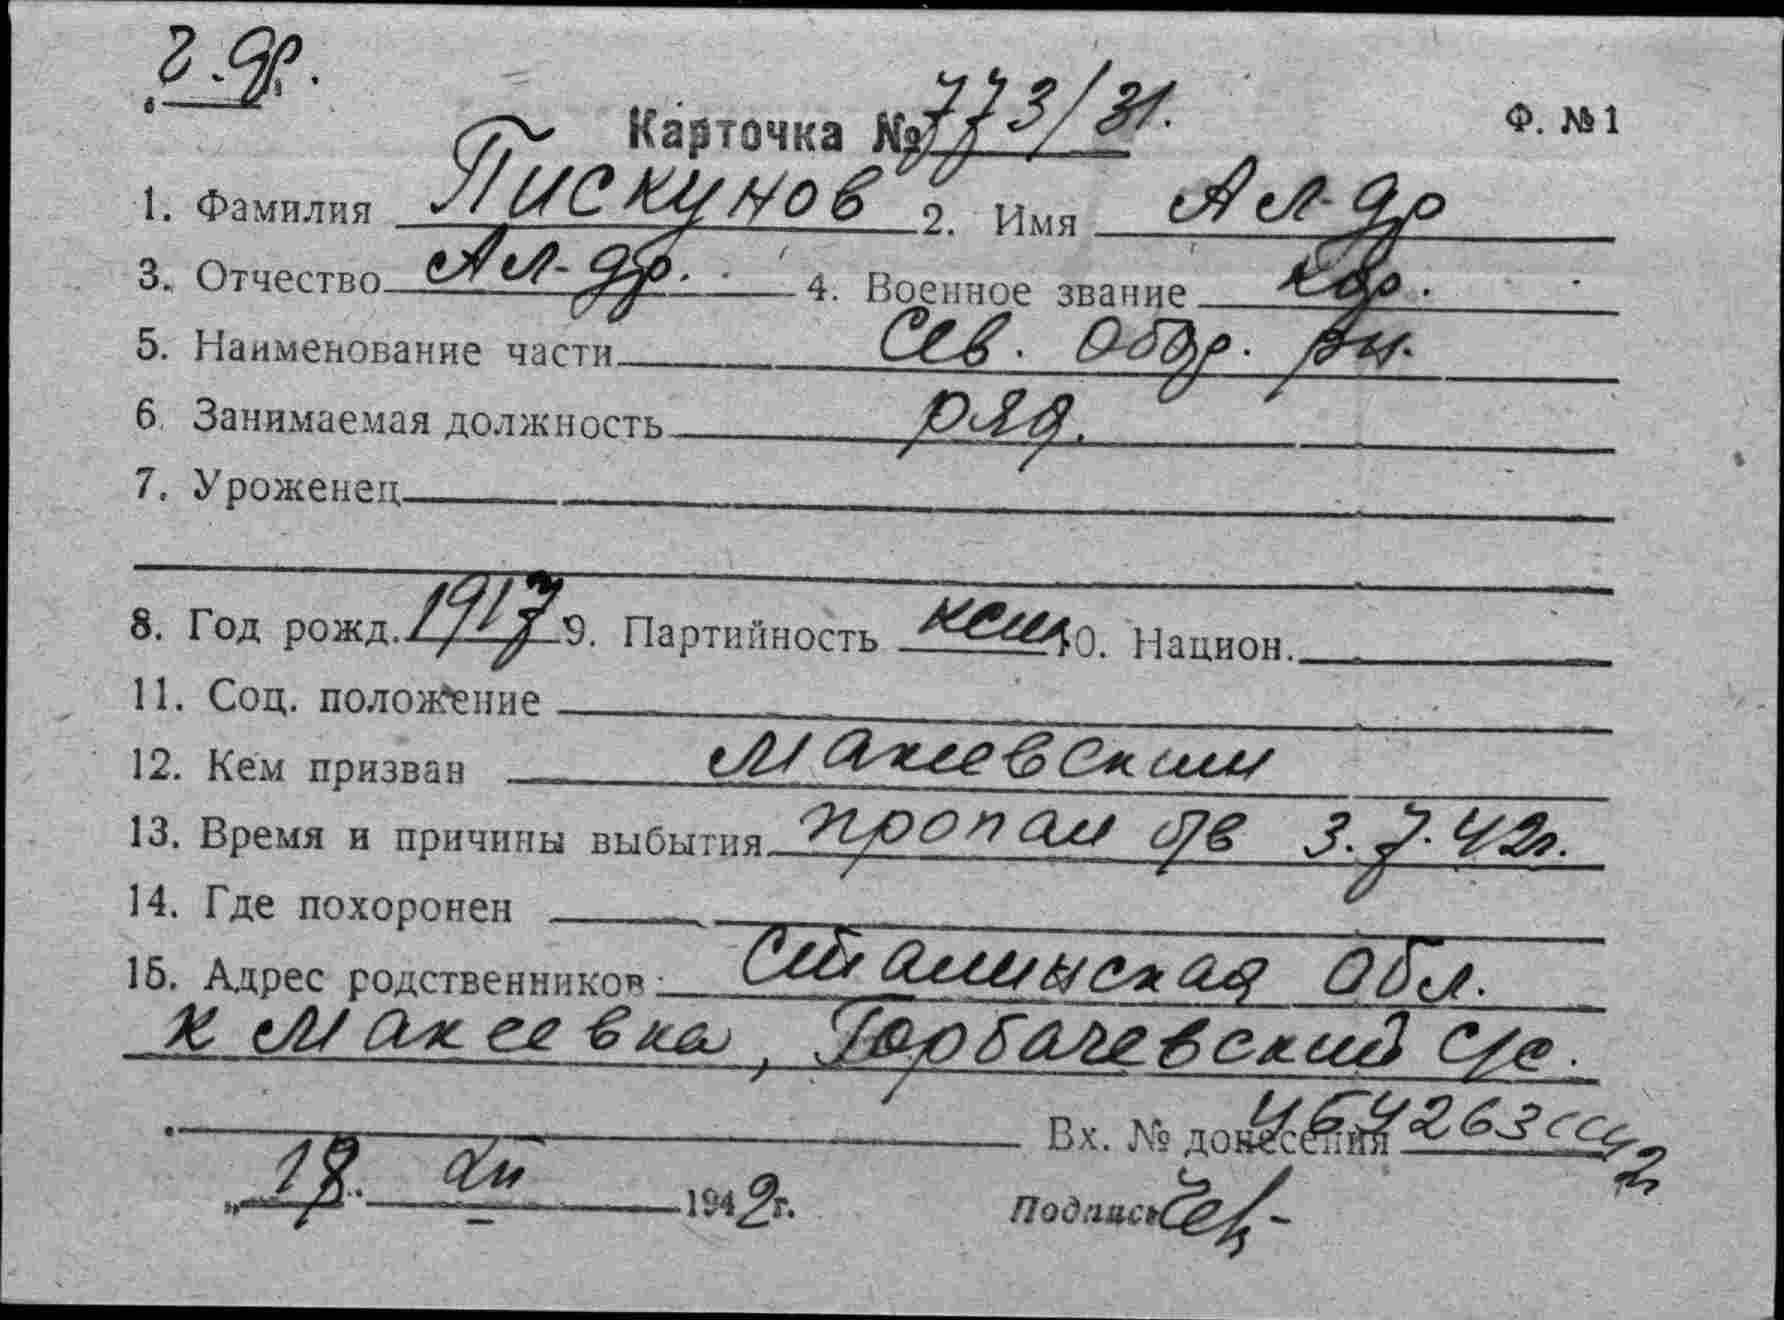 г. др.
Карточка № 773/31.
Ф. №1
1. Фамилия Пискунов 2. Имя Ал-др
3. Отчество Ал-др. 4. Военное звание кр.
5. Наименование части Сев. Обор. рн.
6. Занимаемая должность ряд.
7. Уроженец
8. Год рожд. 1917 9. Партийность 10. Национ.
11. Соц. положение
12. Кем призван Макеевским
13. Время и причины выбытия пропал б/в 3.7.42г.
14. Где похоронен
15. Адрес родственников Сталинская Обл.
к Макеевка, Горбачевский с/с.
Вх. № донесения
18. XII 1942г. Подпись